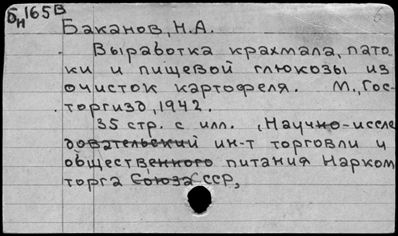 бн165В
Баканов, Н.А.
Выработка крахмала, пато
ки и пищевой глюкозы из
очисток картофеля. М., Гос-
торгизд, 1942.
35 стр. с илл. (Научно-иссле
довательский ин-т торговли и
общественного питания Нарком
торга Союза ССР,